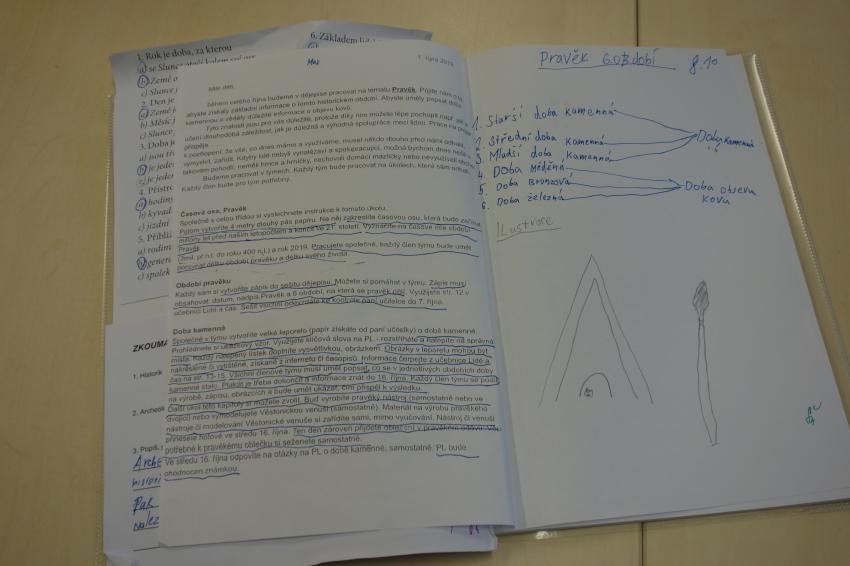 1. Rok je doba, za kterou
a) se Slunce
b) Země
c) Slunce
2. Den je
a) Země
b) Měsíc
c) Slunce
3. Doba
a) jsou
b) je
c) je
a) hodiny
b) kyvad
c) jízdní
5. Přibli
a) rodin
b) gener
c) spolek
6. Základem
ZKOUMÁ
1. Historik
2. Archeol
3. Popiš,
Max
1. října 2019
Milé děti,
během celého října budeme v dějepise pracovat na tématu Pravěk. Půjde nám o to,
abyste získaly základní informace o tomto historickém období. Abyste uměly popsat dobu
kamennou a věděly důležité informace o objevu kovů.
Tyto znalosti jsou pro vás důležité, protože díky nim můžete lépe pochopit např. jak je
učení dlouhodobá záležitost, jak je důležitá a výhodná spolupráce mezi lidmi. Práce na
přispěje
k pochopení, že vše, co dnes máme a využíváme, musel někdo dlouho před námi odhalit,
vymyslet, zařídit. Kdyby lidé nebyli vynalézaví a spolupracující, možná bychom dnes nežili v
takovém pohodlí, neměli hrnce a hrníčky, nechovali domácí mazlíčky nebo nevyužívali
Budeme pracovat v týmech. Každý tým bude pracovat na úkolech, které nám
Každý člen bude pro tým potřebný.
Časová osa, Pravěk
Společně s celou třídou si vyslechnete instrukce k tomuto úkolu.
Potom vytvoříte 4 metry dlouhý pás papíru. Na něj zakreslíte časovou osu, která bude začínat
miliony let před naším letopočtem a končit ve 21. století. Vyznačíte na časové ose období
Pravěk
(2mil. př.n.l. do roku 400 n.l.) a rok 2019. Pracujete společně, každý člen týmu bude umět
porovnat délku období pravěku a délku svého života.
Období pravěku
Každý sám si vytvoříte zápis do sešitu dějepisu. Můžete si pomáhat v týmu. Zápis musí
obsahovat datum, nadpis Pravěk a 6 období, na která se pravěk dělí. Využijete str. 12 v
učebnici Lidé a čas. Sešit všichni odevzdáte ke kontrole paní učitelce do 7. října.
Doba kamenná
Společně v týmu vytvoříte velké leporelo (papír získáte od paní učitelky) o době kamenné.
Prohlédněte si ukázkový vzor. Využijete klíčová slova na PL - rozstříháte a nalepíte na správná
místa. Každý nalepený lístek doplníte vysvětlivkou, obrázkem. Obrázky v leporelu mohou být
nakreslené či vytištěné, získané z internetu či časopisů. Informace čerpejte z učebnice Lidé a
čas na str. 13-15. Všichni členové týmu musí umět popsat, co se v jednotlivých obdobích doby
kamenné stalo. Plakát je třeba dokončit a informace znát do 16. října. Každý člen týmu se podílí
na výrobě, zápisu, obrázcích a bude umět ukázat, čím přispěl k výsledku.
Další úkol této kapitoly si můžete zvolit. Buď vyrobíte pravěký nástroj (samostatně nebo ve
dvojici) nebo vymodelujete Věstonickou venuši (samostatně). Materiál na výrobu pravěkého
nástroje či modelování Věstonické venuše si zařídíte sami, mimo vyučování. Nástroj či venuši
přinesete hotové ve středu 16. října. Ten den zároveň přijdete oblečení v pravěkém oděvu. Vše
potřebné k pravěkému oblečku si seženete samostatně.
Ve středu 16. října odpovíte na otázky na PL o době kamenné, samostatně. PL bude
ohodnocen známkou.
Pravěk 6.období 8.10
1. Starší doba kamenná
2. Střední doba kamenná
3. Mladší doba kamenná
Doba kamenná
4. Doba měděná
5. Doba bronzová
6. Doba železná
Doba objevu
kovu
Ilustrace